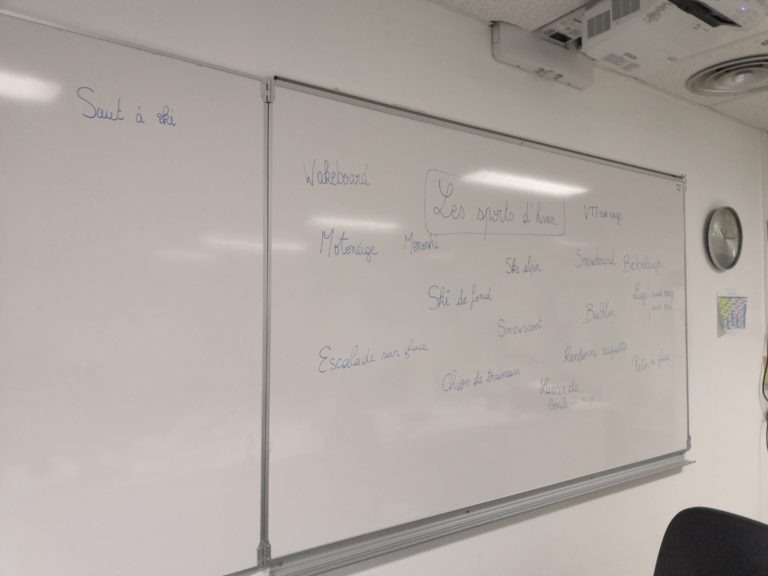 Saut à ski
Wakeboard
Les sports d'hiver.
VTT sur neige
Motoneige
Monoski
Ski alpin
Snowboard
Bobsleigh
Ski de fond
Snowscoot
Biathlon
Escalade sur glace
Randonné raquette
Patin à glace
Chien de traineau
Lancer de
boule de neige